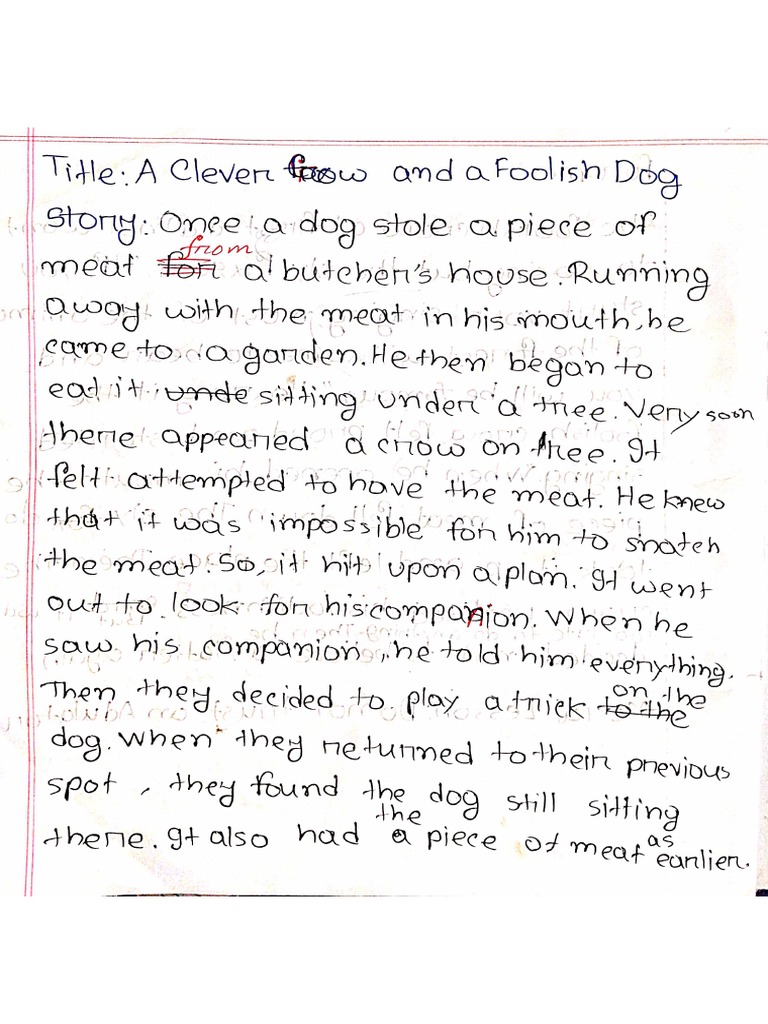 Title: A Clever Crow and a Foolish Dog
Story: Once a dog stole a piece of
meat from a butcher's house. Running
away with the meat in his mouth, he
came to a garden. He then began to
eat it unde sitting under a tree. Very soon
there appeared a crow on tree. It
felt attempted to have the meat. He knew
that it was impossible for him to snatch
the meat. So, it hit upon a plan. It went
out to look for his companion. When he
saw his companion, he told him everything.
Then they decided to play a trick to the on the
dog. When they returned to their previous
spot, they found the dog still sitting
there. It also had the a piece of meat as earlier.